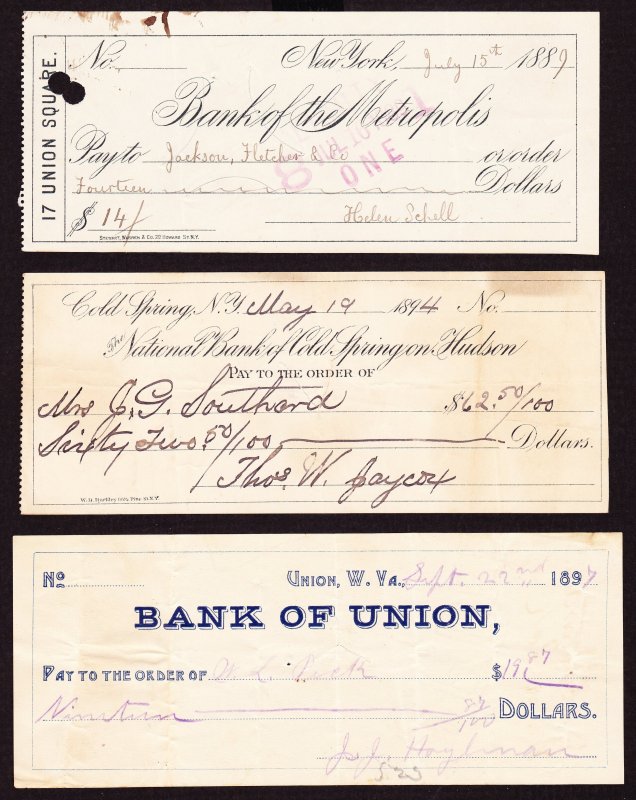 17 UNION SQUARE.
No. New York, July 15th 1889
Bank of the Metropolis
Pay to Jackson, Fletcher & Co or order
Fourteen Dollars
$ 14/
Helen Schell
ONE
Cold Spring, N.Y. May 19 1894 No.
The National Bank of Cold Spring on Hudson
PAY TO THE ORDER OF
Mrs J. G. Southard $62.50/100
Sixty Two 50/100 Dollars.
Thos. W. Jaycox
No UNION, W. VA., Sept. 22nd 1897
BANK OF UNION,
PAY TO THE ORDER OF $19.87
Nineteen 87/100 DOLLARS.
J. J. Hoylman